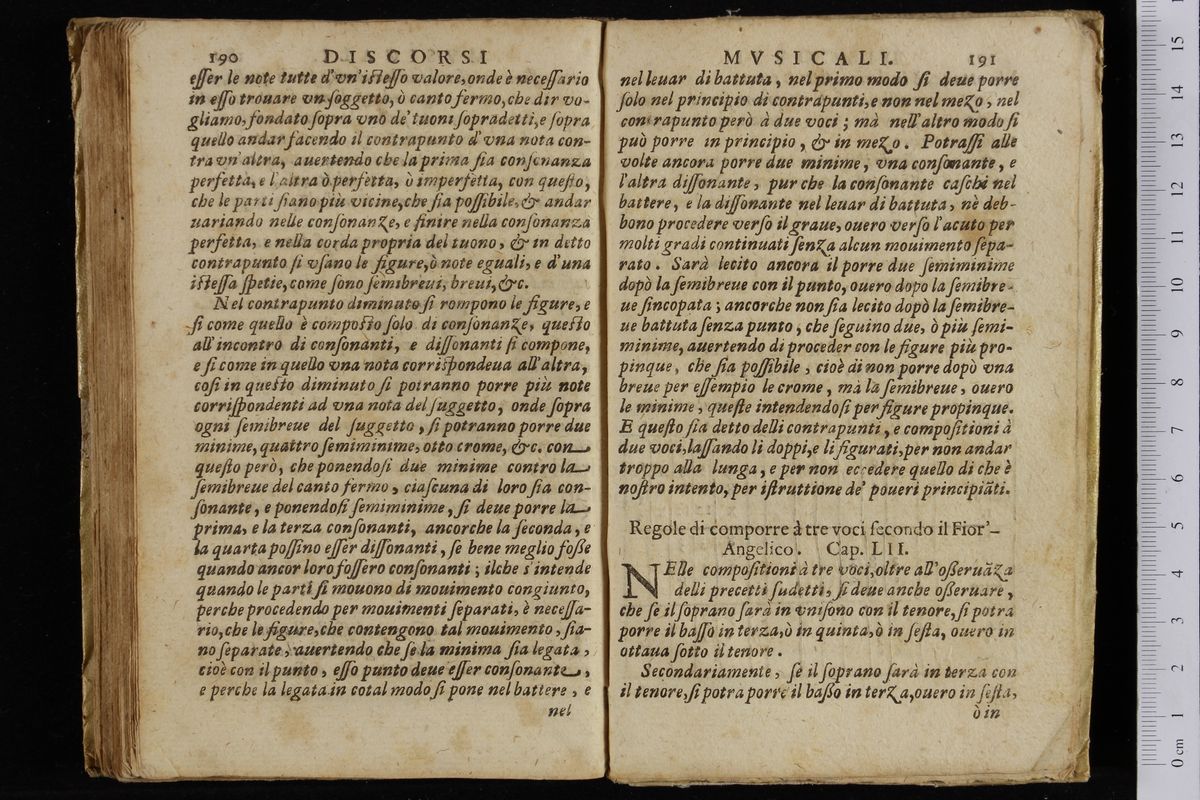 190 DISCORSI
eſſer le note tutte d'vn'iſteſſo valore,onde è neceſſario
in eſſo trouare vn ſoggetto, ò canto fermo,che dir vo-
gliamo,fondato ſopra vno de' tuoni ſopradetti,e ſopra
quello andar facendo il contrapunto d'vna nota con-
tra vn'altra, auertendo che la prima ſia conſonanza
perfetta, e l'altra ò perfetta, ò imperfetta, con queſto,
che le parti ſiano più vicine,che ſia poſſibile, & andar
uariando nelle conſonanze, e finire nella conſonanza
perfetta, e nella corda propria del tuono, & in detto
contrapunto ſi vſano le figure,ò note eguali, e d'una
iſteſſa ſpetie,come ſono ſemibreui, breui, &c.
Nel contrapunto diminuto ſi rompono le figure, e
ſi come quello è compoſto ſolo di conſonanze, queſto
all'incontro di conſonanti, e diſſonanti ſi compone,
e ſi come in quello vna nota corriſpondeua all'altra,
coſi in queſto diminuto ſi potranno porre più note
corriſpondenti ad vna nota del ſuggetto, onde ſopra
ogni ſemibreue del ſuggetto, ſi potranno porre due
minime, quattro ſemiminime, otto crome, &c. con
queſto però, che ponendoſi due minime contro la
ſemibreue del canto fermo, ciaſcuna di loro ſia con-
ſonante, e ponendoſi ſemiminime, ſi deue porre la
prima, e la terza conſonanti, ancorche la ſeconda, e
la quarta poſſino eſſer diſſonanti, ſe bene meglio foſſe
quando ancor loro foſſero conſonanti; ilche s'intende
quando le parti ſi mouono di mouimento congiunto,
perche procedendo per mouimenti ſeparati, è neceſſa-
rio,che le figure,che contengono tal mouimento, ſia-
no ſeparate, auertendo che ſe la minima ſia legata,
cioè con il punto, eſſo punto deue eſſer conſonante,
e perche la legata in cotal modo ſi pone nel battere, e
nel
MVSICALI. 191
nel leuar di battuta, nel primo modo ſi deue porre
ſolo nel principio di contrapunti,e non nel mezo, nel
contrapunto però à due voci; mà nell'altro modo ſi
può porre in principio, & in mezo. Potraſſi alle
volte ancora porre due minime, vna conſonante, e
l'altra diſſonante, pur che la conſonante caſchi nel
battere, e la diſſonante nel leuar di battuta, nè deb-
bono procedere verſo il graue, ouero verſo l'acuto per
molti gradi continuati ſenza alcun mouimento ſepa-
rato. Sarà lecito ancora il porre due ſemiminime
dopò la ſemibreue con il punto, ouero dopò la ſemibre-
ue ſincopata; ancorche non ſia lecito dopò la ſemibre-
ue battuta ſenza punto, che ſeguino due, ò più ſemi-
minime, auertendo di proceder con le figure più pro-
pinque, che ſia poſſibile, cioè di non porre dopò vna
breue per eſſempio le crome, mà la ſemibreue, ouero
le minime, queſte intendendoſi per figure propinque.
E queſto ſia detto delli contrapunti, e compoſitioni à
due voci,laſſando li doppi,e li figurati,per non andar
troppo alla lunga, e per non eccedere quello di che è
noſtro intento, per iſtruttione de' poueri principiãti.
Regole di comporre à tre voci ſecondo il Fior'-
Angelico. Cap. LII.
NElle compoſitioni à tre voci,oltre all'oſſeruãza
delli precetti ſudetti, ſi deue anche oſſeruare,
che ſe il ſoprano ſarà in vniſono con il tenore,ſi potra
porre il baſſo in terza,ò in quinta,ò in ſeſta, ouero in
ottaua ſotto il tenore.
Secondariamente, ſe il ſoprano ſarà in terza con
il tenore,ſi potra porre il baſſo in terza,ouero in ſeſta,
ò in
0 cm 1 2 3 4 5 6 7 8 9 10 11 12 13 14 15